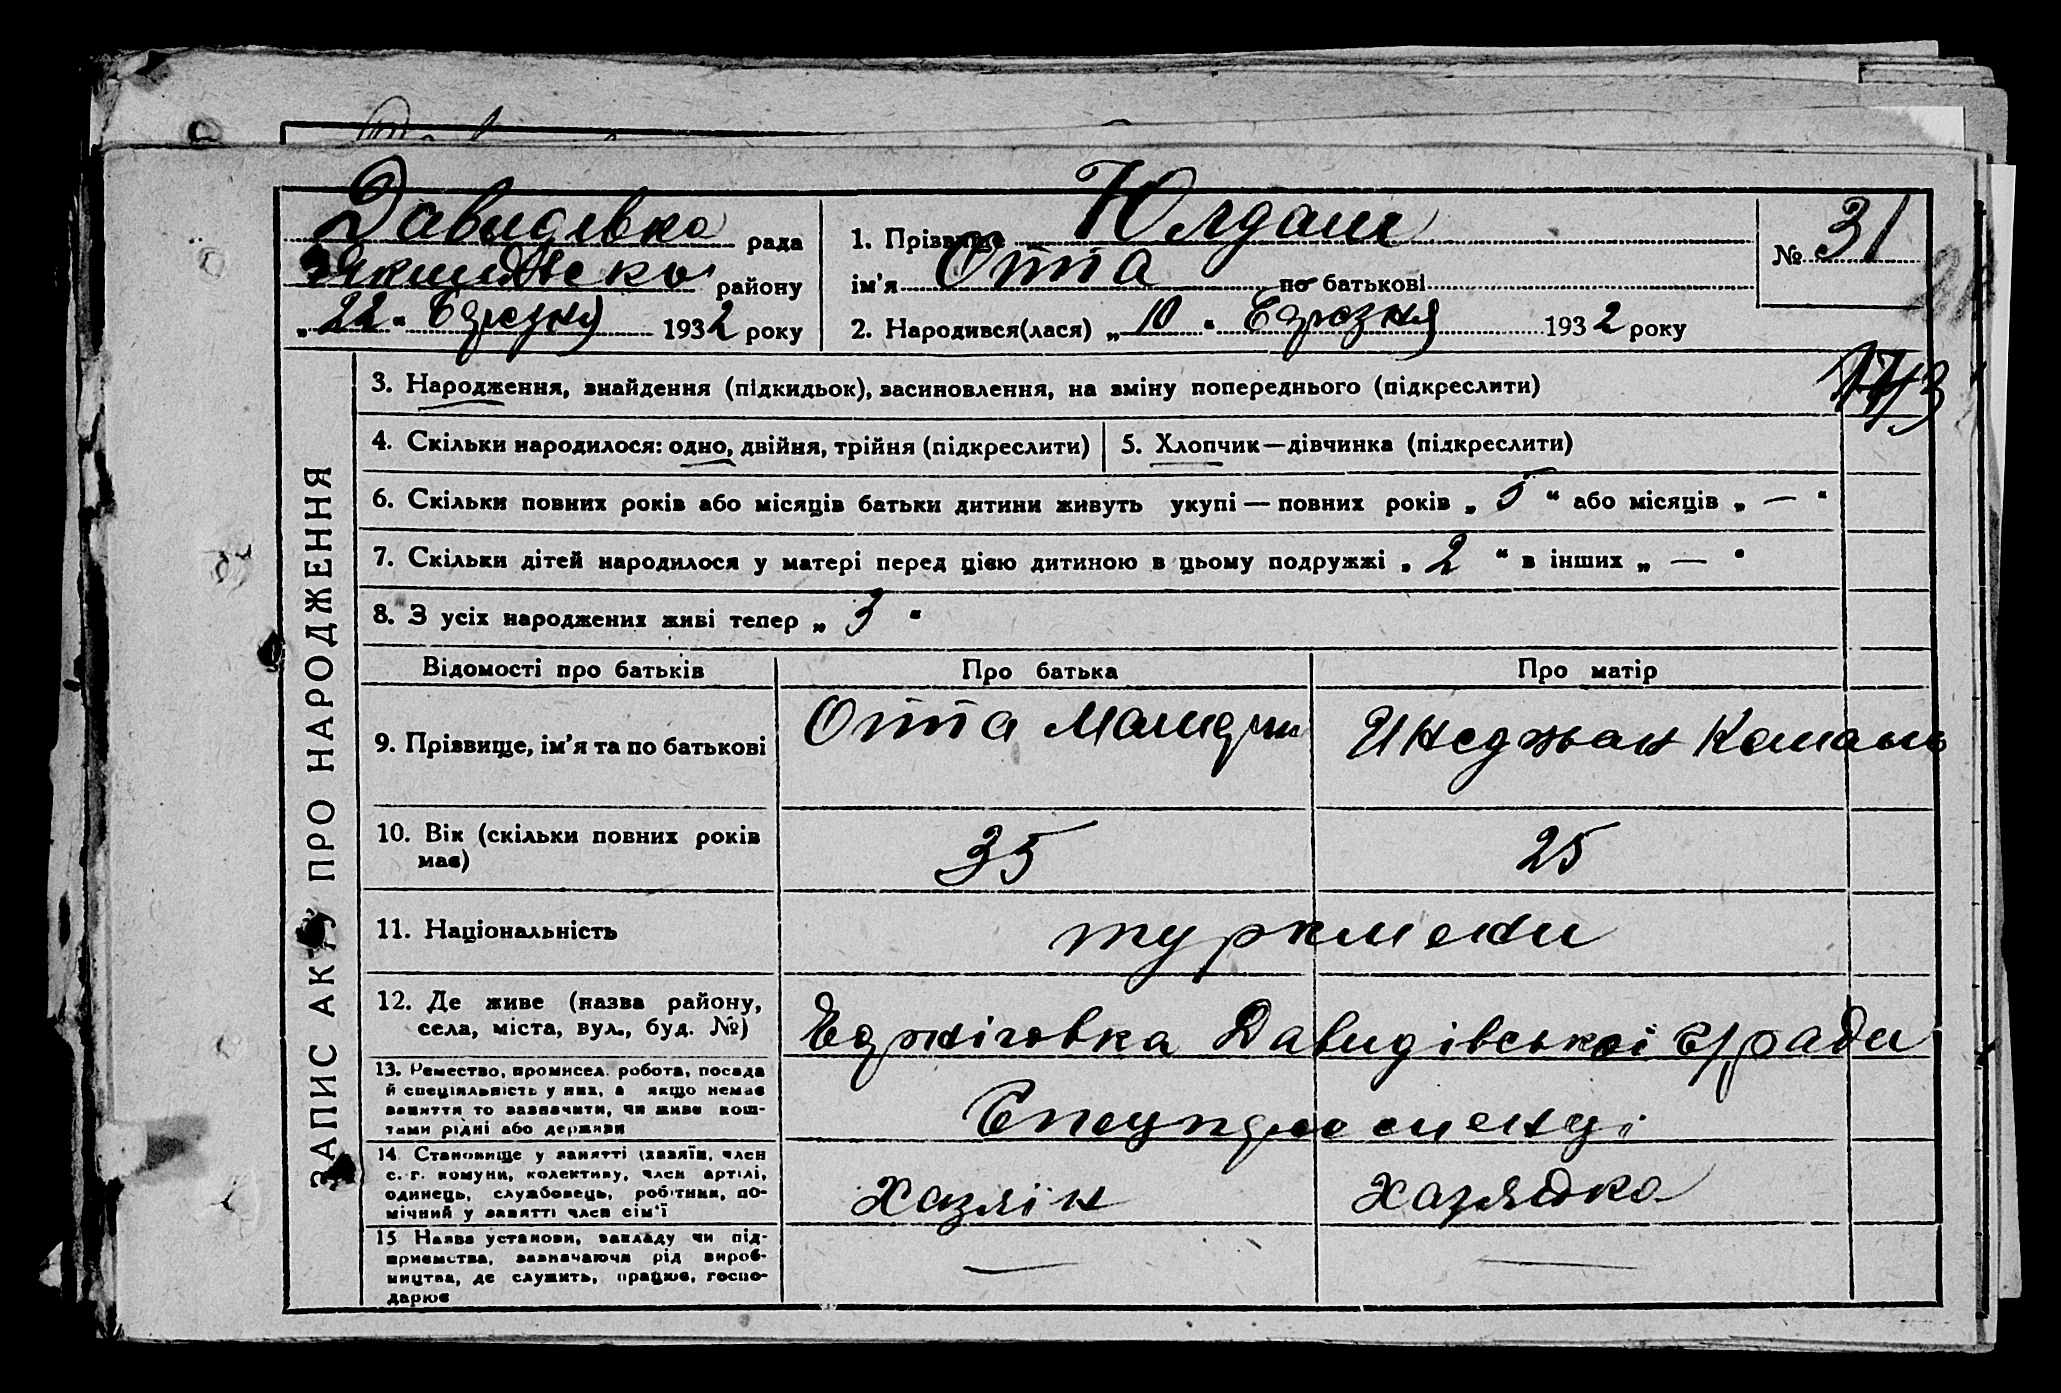 Давидівка рада
Якимівсько району
„22“ березня 1932 року
1. Прізвище Юлдаш
ім'я Отта по батькові
2. Народився(лася) „10“ березня 1932 року
№ 31
1743
3. Народження, знайдення (підкидьок), засиновлення, на зміну попереднього (підкреслити)
4. Скільки народилося: одно, двійня, трійня (підкреслити)
5. Хлопчик—дівчинка (підкреслити)
6. Скільки повних років або місяців батьки дитини живуть укупі — повних років „5“ або місяців „—“
7. Скільки дітей народилося у матері перед цією дитиною в цьому подружжі „2“ в інших „—“
8. З усіх народжених живі тепер „3“
ЗАПИС АКТУ ПРО НАРОДЖЕННЯ
Відомості про батьків
Про батька
Про матір
9. Прізвище, ім'я та по батькові
Отта
Инеджан
10. Вік (скільки повних років
має)
35
25
11. Національність
туркмени
12. Де живе (назва району,
села, міста, вул., буд. №)
Давидівської с/ради
13. Ремество, промисел. робота, посада
й спеціяльність у них, а якщо немає
заняття то зазначити, чи живе кош-
тами рідні або держави
14. Становище у занятті (хазяїн, член
с.-г. комуни, колективу, член артілі,
одинець, службовець, робітник, по-
мічний у занятті член сім'ї
Хазяін
Хазяйка
15 Назва установи, закладу чи під-
приємства, зазначаючи рід вироб-
ництва, де служить, працює, госпо-
дарює
—
—